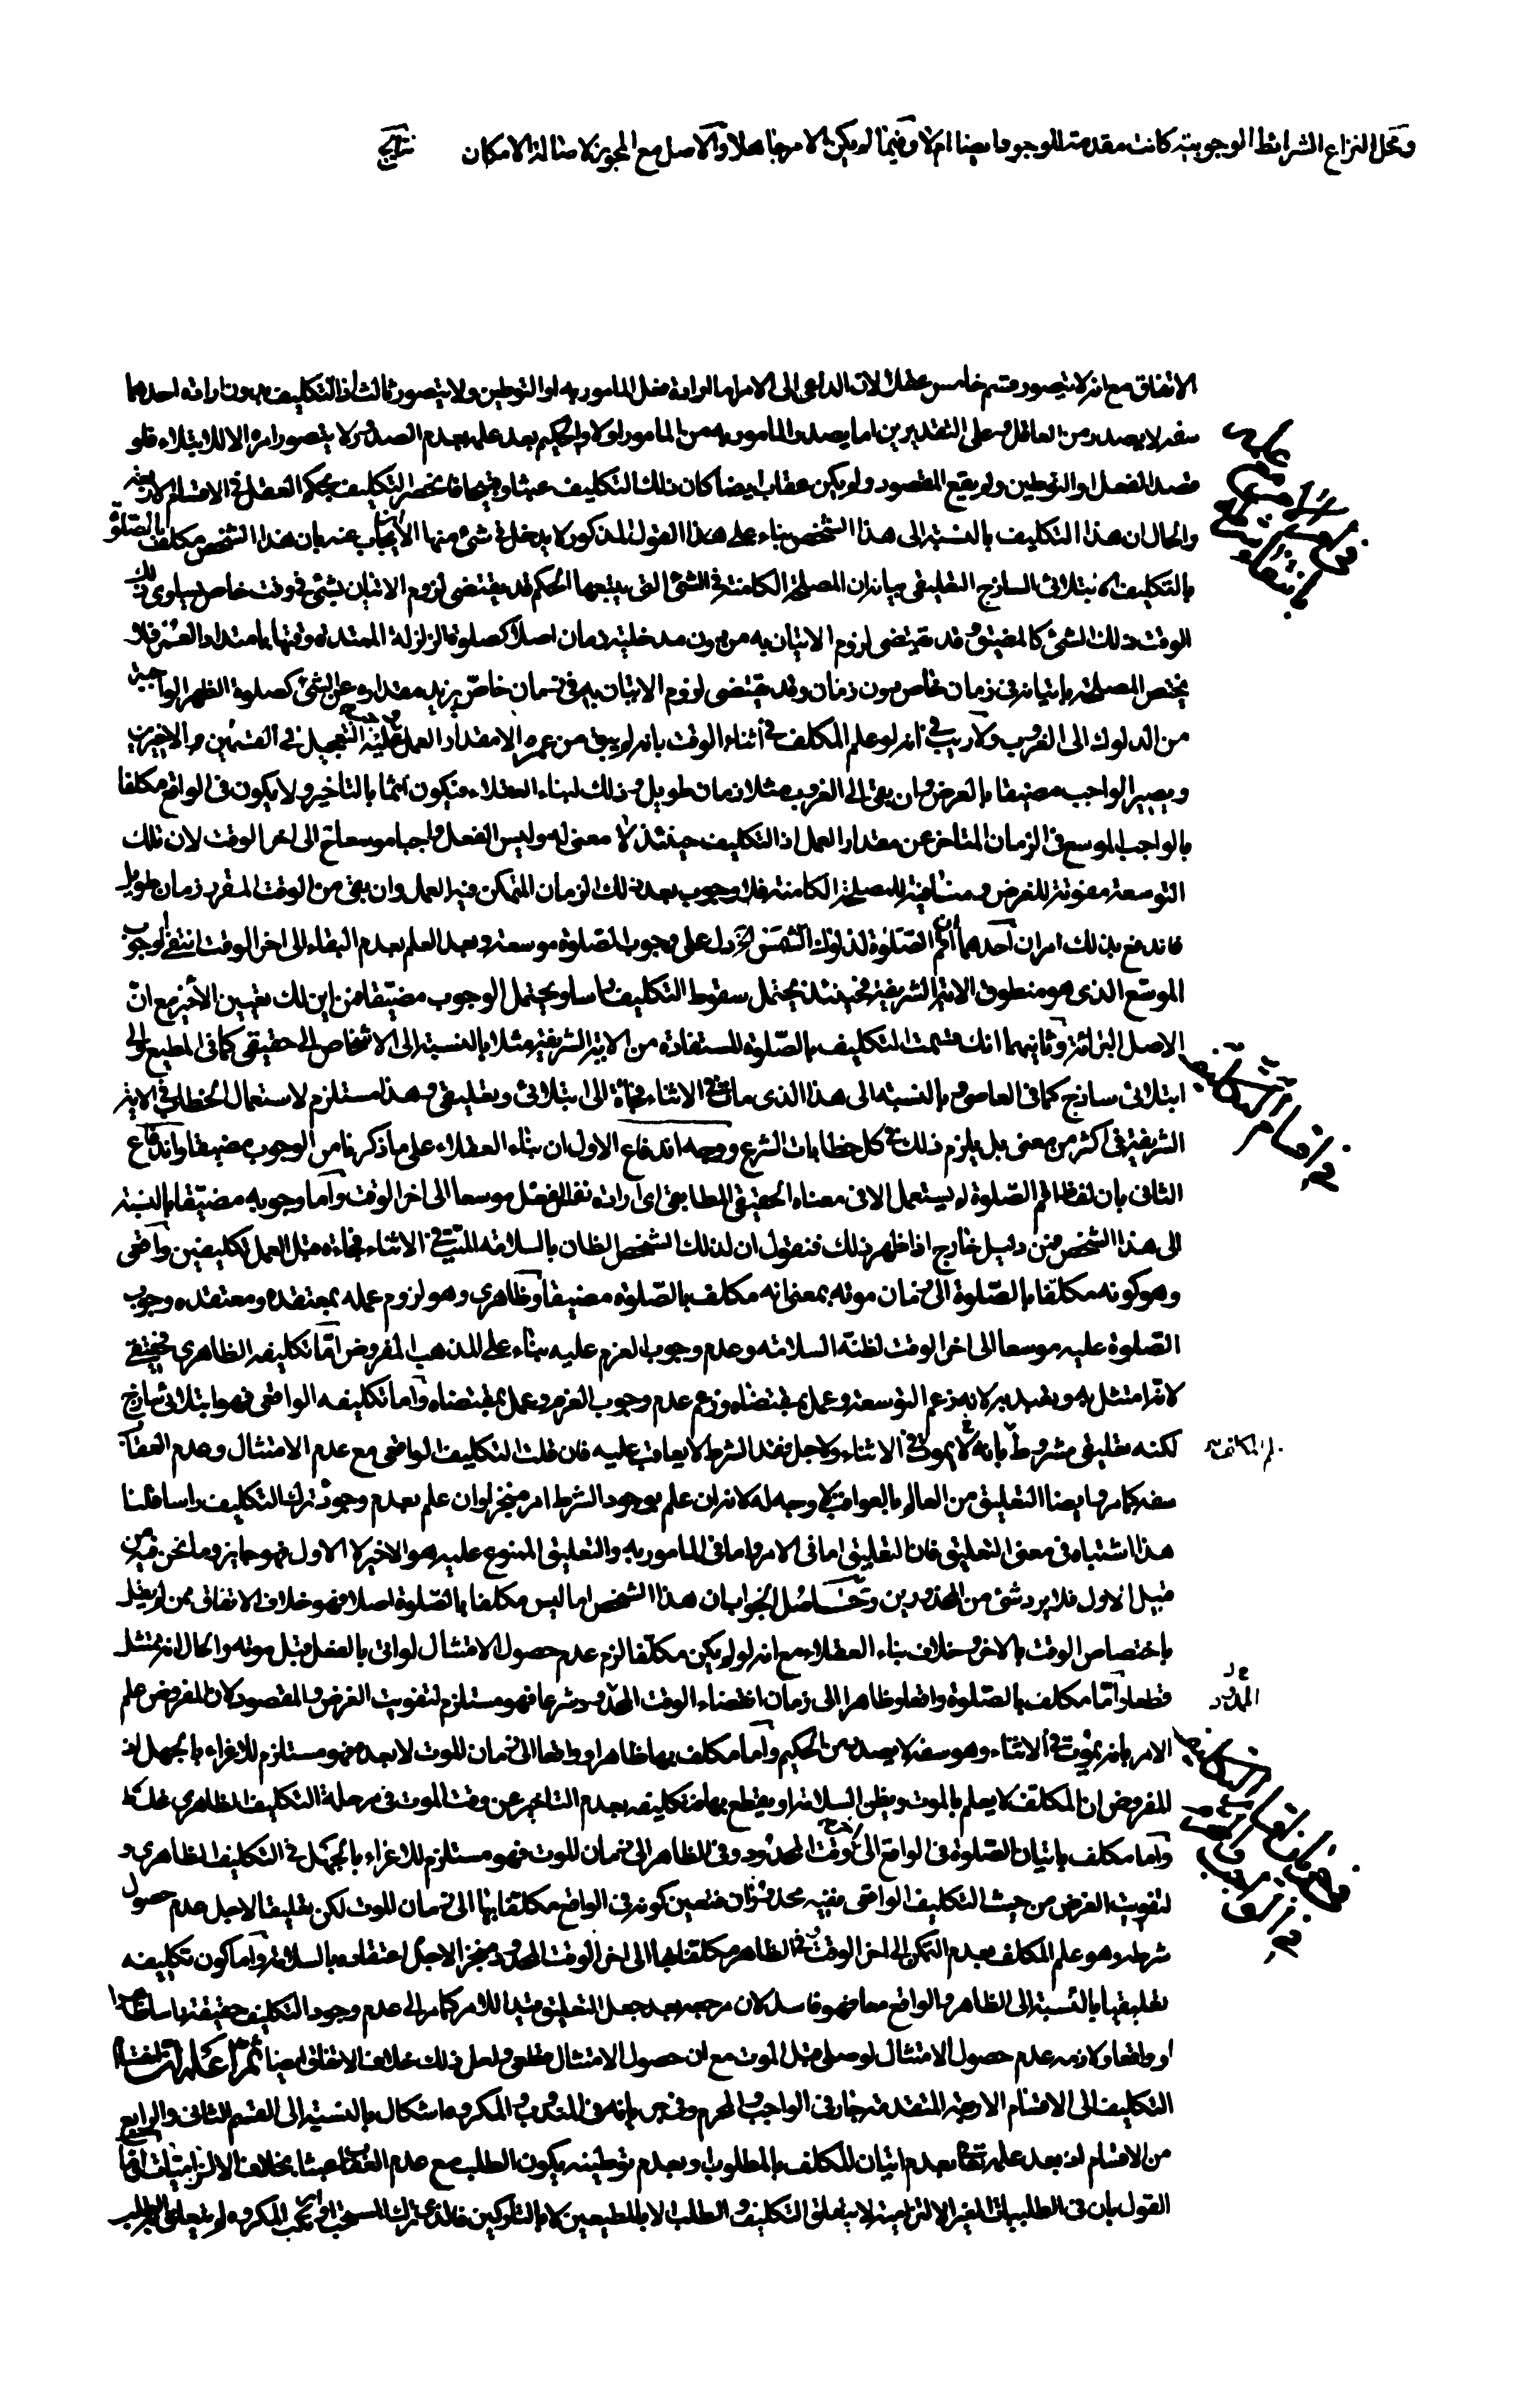 ومحل النزاع الشرائط الوجوبية كانت مقدمة للوجود ايضا ام لا وفيما لم يكن الامر جاهلا والاصل مع المجوز لاصالة الامكان
نتايج
الاتفاق مع انه لا يتصور قسم خامس عقلا لان الداعى الى الامر اما ارادة فعل المامور به او التوطين ولا يتصور ثالث اذ التكليف بدون ارادة احدهما
سفه لا يصدر من العاقل وعلى التقديرين اما يصدر المامور به من المامور اولا والحكيم بعد علمه بعدم الصدور لا يتصور امره الا للابتلاء فلو
قصد الفعل والتوطين ولم يقع المقصود ولم يكن عقاب ايضا كان ذلك التكليف عبثا وقبيحا فانحصر التكليف بحكم العقل فى الاقسام الاربعة
والحال ان هذا التكليف بالنسبة الى هذا الشخص بناء على هذا القول المذكور لا يدخل فى شئ منها الا ان يجاب عنه بان هذا الشخص مكلف بالصلوة
بالتكليف الابتلائى الساذج التعليقى بيانه ان المصلحة الكامنة فى الشئ التى يتبعها الحكم قد يقتضى لزوم الاتيان بشئ فى وقت خاص يساوى ذلك
الوقت ذلك الشئ كالمضيق وقد يقتضى لزوم الاتيان به من دون مدخلية زمان اصلا كصلوة الزلزلة الممتدة وقتها بامتداد العمر فلا
يختص المصلحة باتيانه فى زمان خاص دون زمان وقد يقتضى لزوم الاتيان به فى زمان خاص يزيد مقداره عن الشئ كصلوة الظهر الواجبة
من الدلوك الى الغروب ولا ريب فى انه لو علم المكلف فى اثناء الوقت بانه لم يبق من عمره الا مقدار العمل وجب عليه التعجيل فى القسمين الاخيرين
ويصير الواجب مضيقا بالعرض وان بقى الى الغروب مثلا زمان طويل وذلك لبناء العقلاء فيكون آثما بالتاخير ولا يكون فى الواقع مكلفا
بالواجب الموسع فى الزمان المتاخر عن مقدار العمل اذ التكليف حينئذ لا معنى له وليس الفعل واجبا موسعا ح الى اخر الوقت لان تلك
التوسعة مفوتة للغرض ومنافية للمصلحة الكامنة فلا وجوب بعد ذلك الزمان المتمكن فيه العمل وان بقى من الوقت المقرر زمان طويل
فاندفع بذلك امران احدهما ان اقم الصلوة لدلوك الشمس الخ دل على وجوب الصلوة موسعة وبعد العلم بعدم البقاء الى اخر الوقت انتفى الوجوب
الموسع الذى هو منطوق الاية الشريفة فحينئذ يحتمل سقوط التكليف راسا ويحتمل الوجوب مضيقا فمن اين لك تعيين الاخير مع ان
الاصل البرائة وثانيهما انك قسمت التكليف بالصلوة المستفادة من الاية الشريفة مثلا بالنسبة الى الاشخاص الى حقيقى كما فى المطيع والى
ابتلائى ساذج كما فى العاصى وبالنسبة الى هذا الذى مات فى الاثناء فجأة الى ابتلائى وتعليقى وهذا مستلزم لاستعمال الخطاب فى الاية
الشريفة فى اكثر من معنى بل يلزم ذلك فى كل خطابات الشرع ووجه اندفاع الاول ان بناء العقلاء على ما ذكرنا من الوجوب مضيقا واندفاع
الثانى بان لفظ اقم الصلوة لم يستعمل الا فى معناه الحقيقى المطابقى اى ارادة نفس الفعل موسعا الى اخر الوقت واما وجوبه مضيقا بالنسبة
الى هذا الشخص فمن دليل خارج اذا ظهر ذلك فنقول ان لذلك الشخص الظان بالسلامة الميت فى الاثناء فجاءة قبل العمل تكليفين واقعى
وهو كونه مكلفا بالصلوة الى زمان موته بمعنى انه مكلف بالصلوة مضيقا وظاهرى وهو لزوم عمله بمعتقده ومعتقده وجوب
الصلوة عليه موسعا الى اخر الوقت لظنه السلامة وعدم وجوب العزم عليه بناء على المذهب المفروض اما تكليفه الظاهرى فحقيقى
لكنه تعليقى مشروط بانه لا يموت فى الاثناء ولاجل فقد الشرط لا يعاقب عليه فان قلت التكليف الواقعى مع عدم الامتثال وعدم العقاب
سفه كما مر وايضا التعليق من العالم بالعواقب لا وجه له لانه ان علم بوجود الشرط امر منجزا وان علم بعدم وجوده ترك التكليف راسا قلنا
هذا اشتباه فى معنى التعليق فان التعليق اما فى الامر واما فى المامور به والتعليق الممنوع عليه هو الاخير لا الاول فهو جايز وما نحن فيه من
قبيل الاول فلا يرد شئ من المحذورين وحاصل الجواب ان هذا الشخص اما ليس مكلفا بالصلوة اصلا فهو خلاف الاتفاق ممن لم يقل
باختصاص الوقت بالاخر وخلاف بناء العقلاء مع انه لو لم يكن مكلفا لزم عدم حصول الامتثال لو اتى بالفعل قبل موته والحال انه يمتثل
قطعا واما مكلف بالصلوة واقعا وظاهرا الى زمان انقضاء الوقت المحدود شرعا فهو مستلزم لتفويت الغرض والمقصود لان المفروض علم
الامر بانه يموت فى الاثناء وهو سفه لا يصدر من الحكيم واما مكلف بها ظاهرا وواقعا الى زمان الموت لا بعده فهو مستلزم للاغراء بالجهل اذ
المفروض ان المكلف لا يعلم بالموت ويظن السلامة او يقطع بها فتكليفه بعدم التاخير عن وقت الموت فى مرحلة التكليف الظاهرى غلط
واما مكلف باتيان الصلوة فى الواقع الى اخر وقت المحدود وفى الظاهر الى زمان الموت فهو مستلزم للاغراء بالجهل فى التكليف الظاهرى و
لتفويت الغرض من حيث التكليف الواقعى ففيه محذوران فتعين كونه فى الواقع مكلفا بها الى زمان الموت لكن تعليقا لاجل عدم حصول
شرطه وهو علم المكلف بعدم التمكن الى اخر الوقت وفى الظاهر مكلفا بها الى اخر الوقت المحدود منجزا لاجل اعتقاده بالسلامة واما كون تكليفه
تعليقيا بالنسبة الى الظاهر والواقع معا فهو فاسد لان مرجعه بعد جعل التعليق قيدا للامر كما مر الى عدم وجود التكليف حقيقة راسا ظاهرا
او واقعا ولازمه عدم حصول الامتثال لو صلى قبل الموت مع ان حصول الامتثال قطعى ولعل ذلك خلاف الاتفاق ايضا ثم اعلم ان تقسيم
التكليف الى الاقسام الاربعة المتقدمة جار فى الواجب والحرام وفى جريانه فى المندوب والمكروه اشكال بالنسبة الى القسم الثانى والرابع
من الاقسام اذ بعد علمه تعالى بعدم اتيان المكلف بالمطلوب وبعدم توطينه يكون الطلب مع عدم العقاب عبثا بخلاف الالزاميات